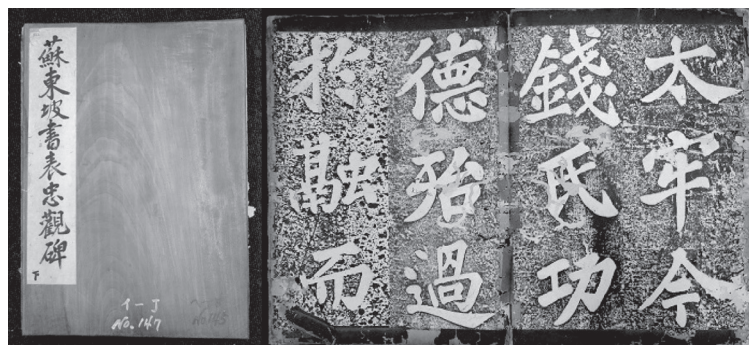 蘇東坡書表忠觀碑
下
イーJ
No. 147
No 145
太牢今
錢氏功
德殆過
於融而